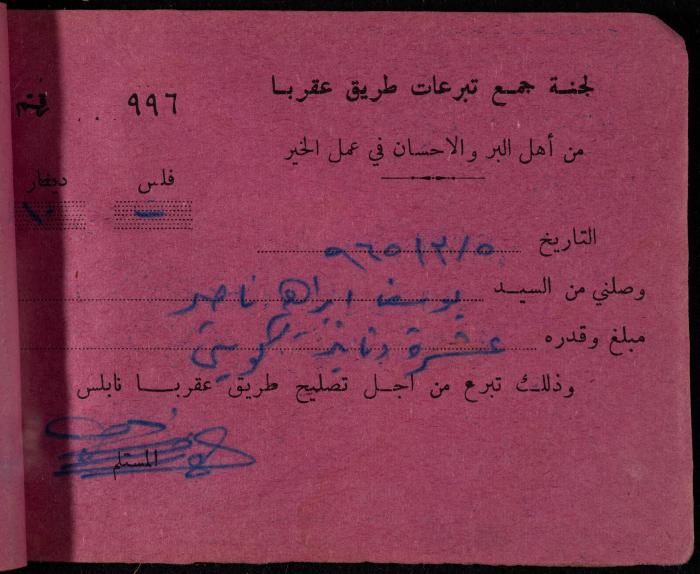 لجنة جمع تبرعات طريق عقربا
٩٩٦
من أهل البر والاحسان في عمل الخير
فلس دينار
- ١٠
التاريخ ٩٦٥/٣/٥
وصلني من السيد يوسف ابراهيم ناصر
مبلغ وقدره عشرة دنانير كويتي
وذلك تبرع من اجل تصليح طريق عقربا نابلس
المستلم